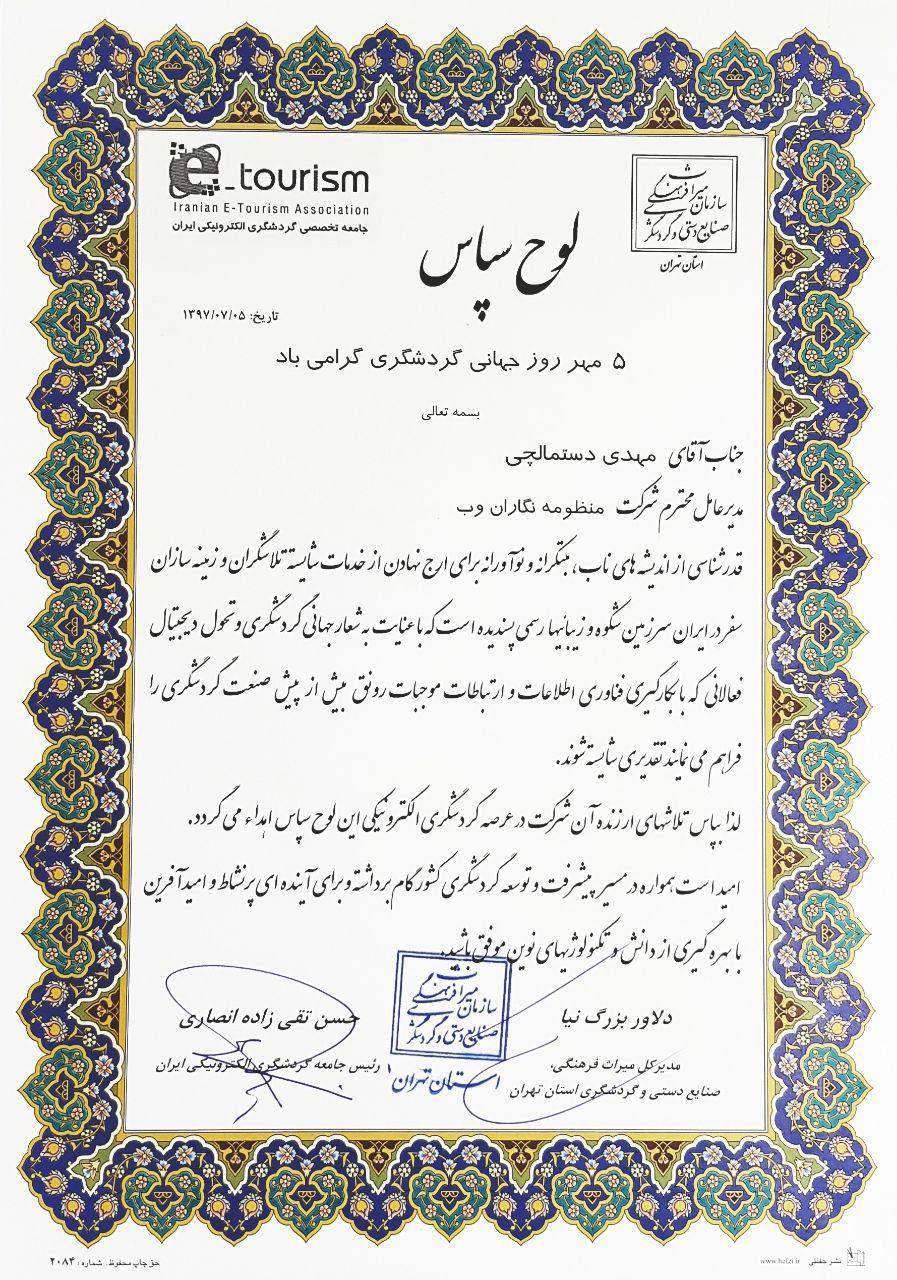 e-tourism
Iranian E-Tourism Association
جامعه تخصصی گردشگری الکترونیکی ایران
سازمان میراث فرهنگی
صنایع دستی و گردشگری
استان تهران
لوح سپاس
تاریخ: ۱۳۹۷/۰۷/۰۵
۵ مهر روز جهانی گردشگری گرامی باد
بسمه تعالی
جناب آقای مهدی دستمالچی
مدیرعامل محترم شرکت منظومه نگاران وب
قدرشناسی از اندیشه های ناب، مبتکرانه و نوآورانه برای ارج نهادن از خدمات شایسته تلاشگران و زمینه سازان
سفر در ایران سرزمین شکوه و زیبائیها رسمی پسندیده است که با عنایت به شعار جهانی گردشگری و تحول دیجیتال
فعالانی که با بکارگیری فناوری اطلاعات و ارتباطات موجبات رونق بیش از پیش صنعت گردشگری را
فراهم می نمایند تقدیری شایسته شوند.
لذا بپاس تلاشهای ارزنده آن شرکت در عرصه گردشگری الکترونیکی این لوح سپاس اهداء می گردد.
امید است همواره در مسیر پیشرفت و توسعه گردشگری کشور گام برداشته و برای آینده ای پرنشاط و امیدآفرین
با بهره گیری از دانش و تکنولوژیهای نوین موفق باشید.
دلاور بزرگ نیا
مدیرکل میراث فرهنگی،
صنایع دستی و گردشگری استان تهران
سازمان میراث فرهنگی
صنایع دستی و گردشگری
استان تهران
حسن تقی زاده انصاری
رئیس جامعه گردشگری الکترونیکی ایران
حق چاپ محفوظ. شماره: ۲۰۸۴
www.hefzi.ir نشر حفظی